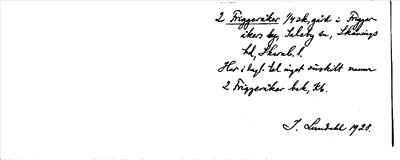 2 Friggeråker 1/4 sk, gård i Frigger-
åkers by, Saleby sn, Skånings
hd, Skarab. l.
Har i dagl. tal inget enskilt namn
2 Friggeråker bek, Kb.
I. Lundahl 1928.